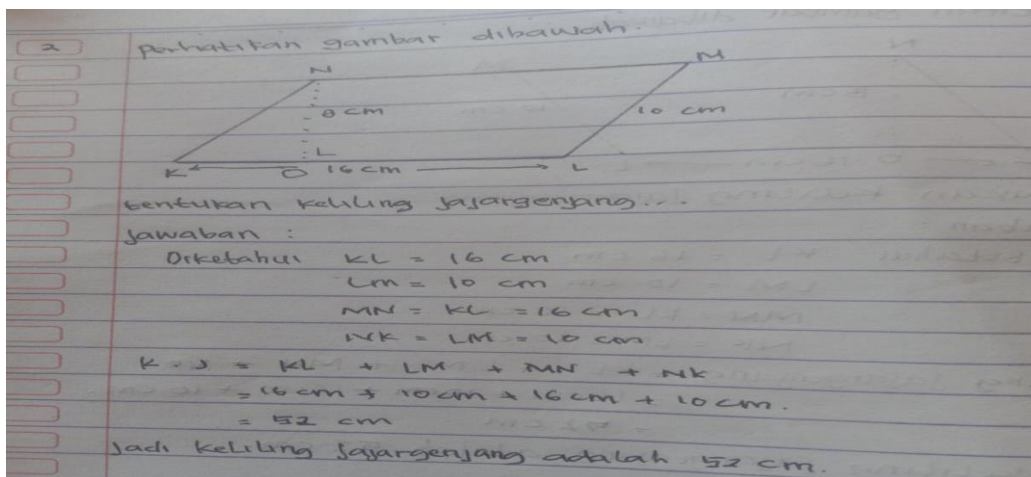 2 Perhatikan gambar dibawah.
N M
8 cm 10 cm
K O 16 cm L
tentukan keliling Jajargenjang...
Jawaban :
Diketahui KL = 16 cm
LM = 10 cm
MN = KL = 16 cm
NK = LM = 10 cm
K.J = KL + LM + MN + NK
= 16 cm + 10 cm + 16 cm + 10 cm.
= 52 cm
Jadi keliling Jajargenjang adalah 52 cm.